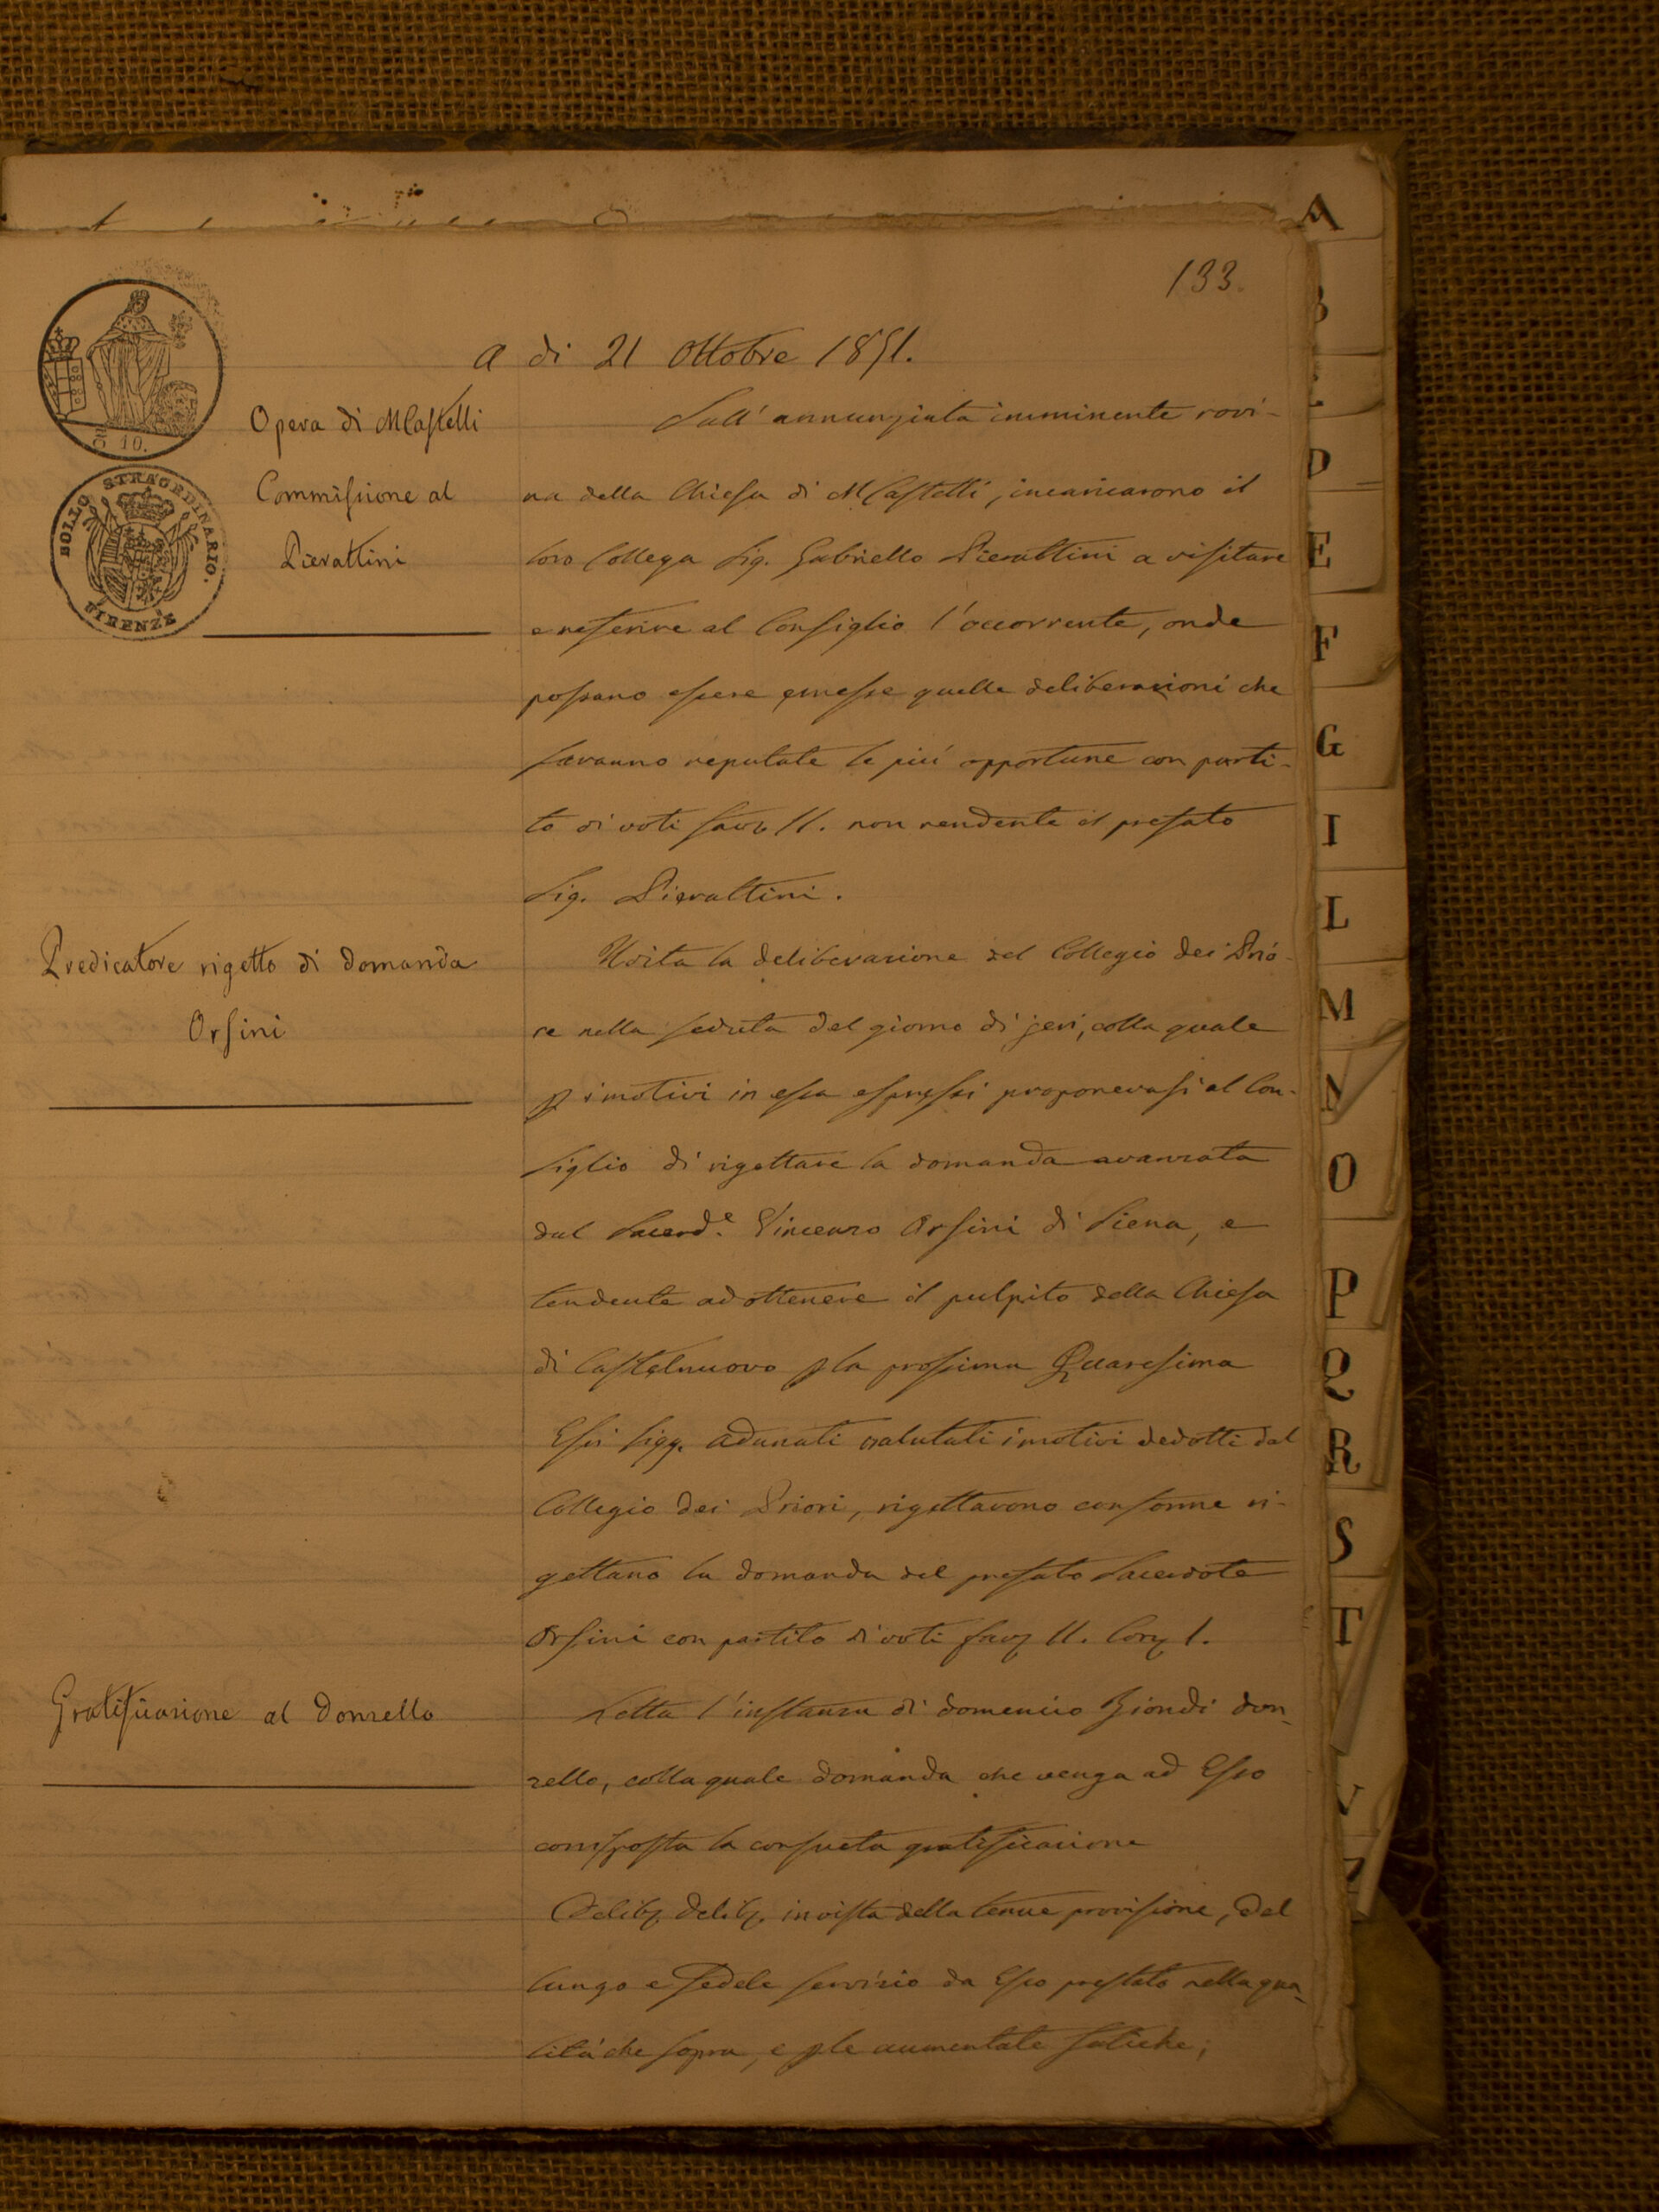 133.
A
B
a di 21 Ottobre 1851.
C 10.
BOLLO STRAORDINARIO.
FIRENZE
Opera di MCastelli
Commissione al
Pierattini
Sull' annunziata imminente rovi-
na della Chiesa di MCastelli, incaricarono il
loro Collega Sig. Gabriello Pierattini a visitare
e referire al Consiglio l'occorrente, onde
possano essere emesse quelle deliberazioni che
saranno reputate le più opportune con parti-
to di voti favi 11. non rendente il prefato
Sig. Pierattini.
Predicatore rigetto di domanda
Orsini
Udita la deliberazione del Collegio dei Prio-
re nella seduta del giorno di jeri, colla quale
p i motivi in essa espressi proponevasi al Con-
siglio di rigettare la domanda avanzata
dal Sacerd.e Vincenzo Orsini di Siena, e
tendente ad ottenere il pulpito della Chiesa
di Castelnuovo p la prossima Quaresima
Essi Sigg. adunati valutati i motivi dedotti dal
Collegio dei Priori, rigettarono conforme ri-
gettano la domanda del prefato Sacerdote
Orsini con partito di voti favi 11. Cori 1.
Gratificazione al Donzello
Letta l'instanza di Domenico Biondi don-
zello, colla quale domanda che venga ad Esso
corrisposta la consueta gratificazione
Delib. Delib. in vista della tenue provisione, del
lungo e fedele servizio da Esso prestato nella qua-
lità che sopra, e p le aumentate fatiche;
D
E
F
G
I
L
M
N
O
P
Q
R
S
T
V
Z